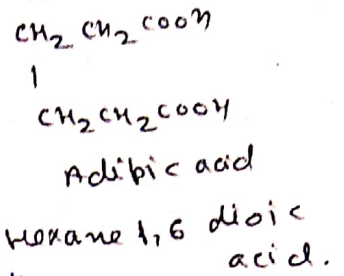 CH₂ CH₂ COOH
|
CH₂CH₂COOH
Adibic acid
Hexane 1,6 dioic
acid.